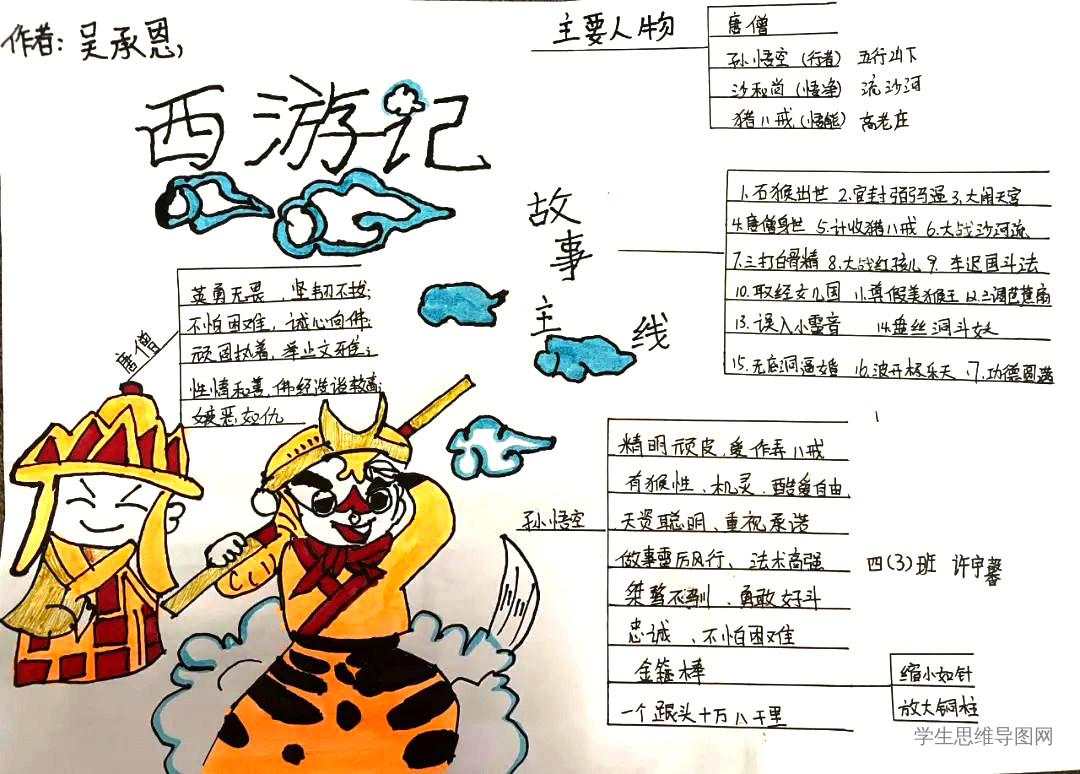 作者：吴承恩，
西游记
主要人物
唐僧
孙悟空（行者） 五行山下
沙和尚（悟净） 流沙河
猪八戒（悟能） 高老庄
故事主线
1.石猴出世 2.官封弼马温 3.大闹天宫
4.唐僧身世 5.计收猪八戒 6.大战沙河流
7.三打白骨精 8.大战红孩儿 9.车迟国斗法
10.取经女儿国 11.真假美猴王 12.三调芭蕉扇
13.误入小雷音 14.盘丝洞斗妖
15.无底洞逼婚 16.波开极乐天 17.功德圆满
唐僧
英勇无畏、坚韧不拔；
不怕困难，诚心向佛；
顽固执着，举止文雅；
性情和善，佛经造诣较高；
嫉恶如仇
孙悟空
精明顽皮，爱作弄八戒
有猴性、机灵、酷爱自由
天资聪明、重视承诺
做事雷厉风行、法术高强
桀骜不驯、勇敢好斗
忠诚、不怕困难
金箍棒
缩小如针
放大铜柱
一个跟头十万八千里
四（3）班 许宇馨
学生思维导图网